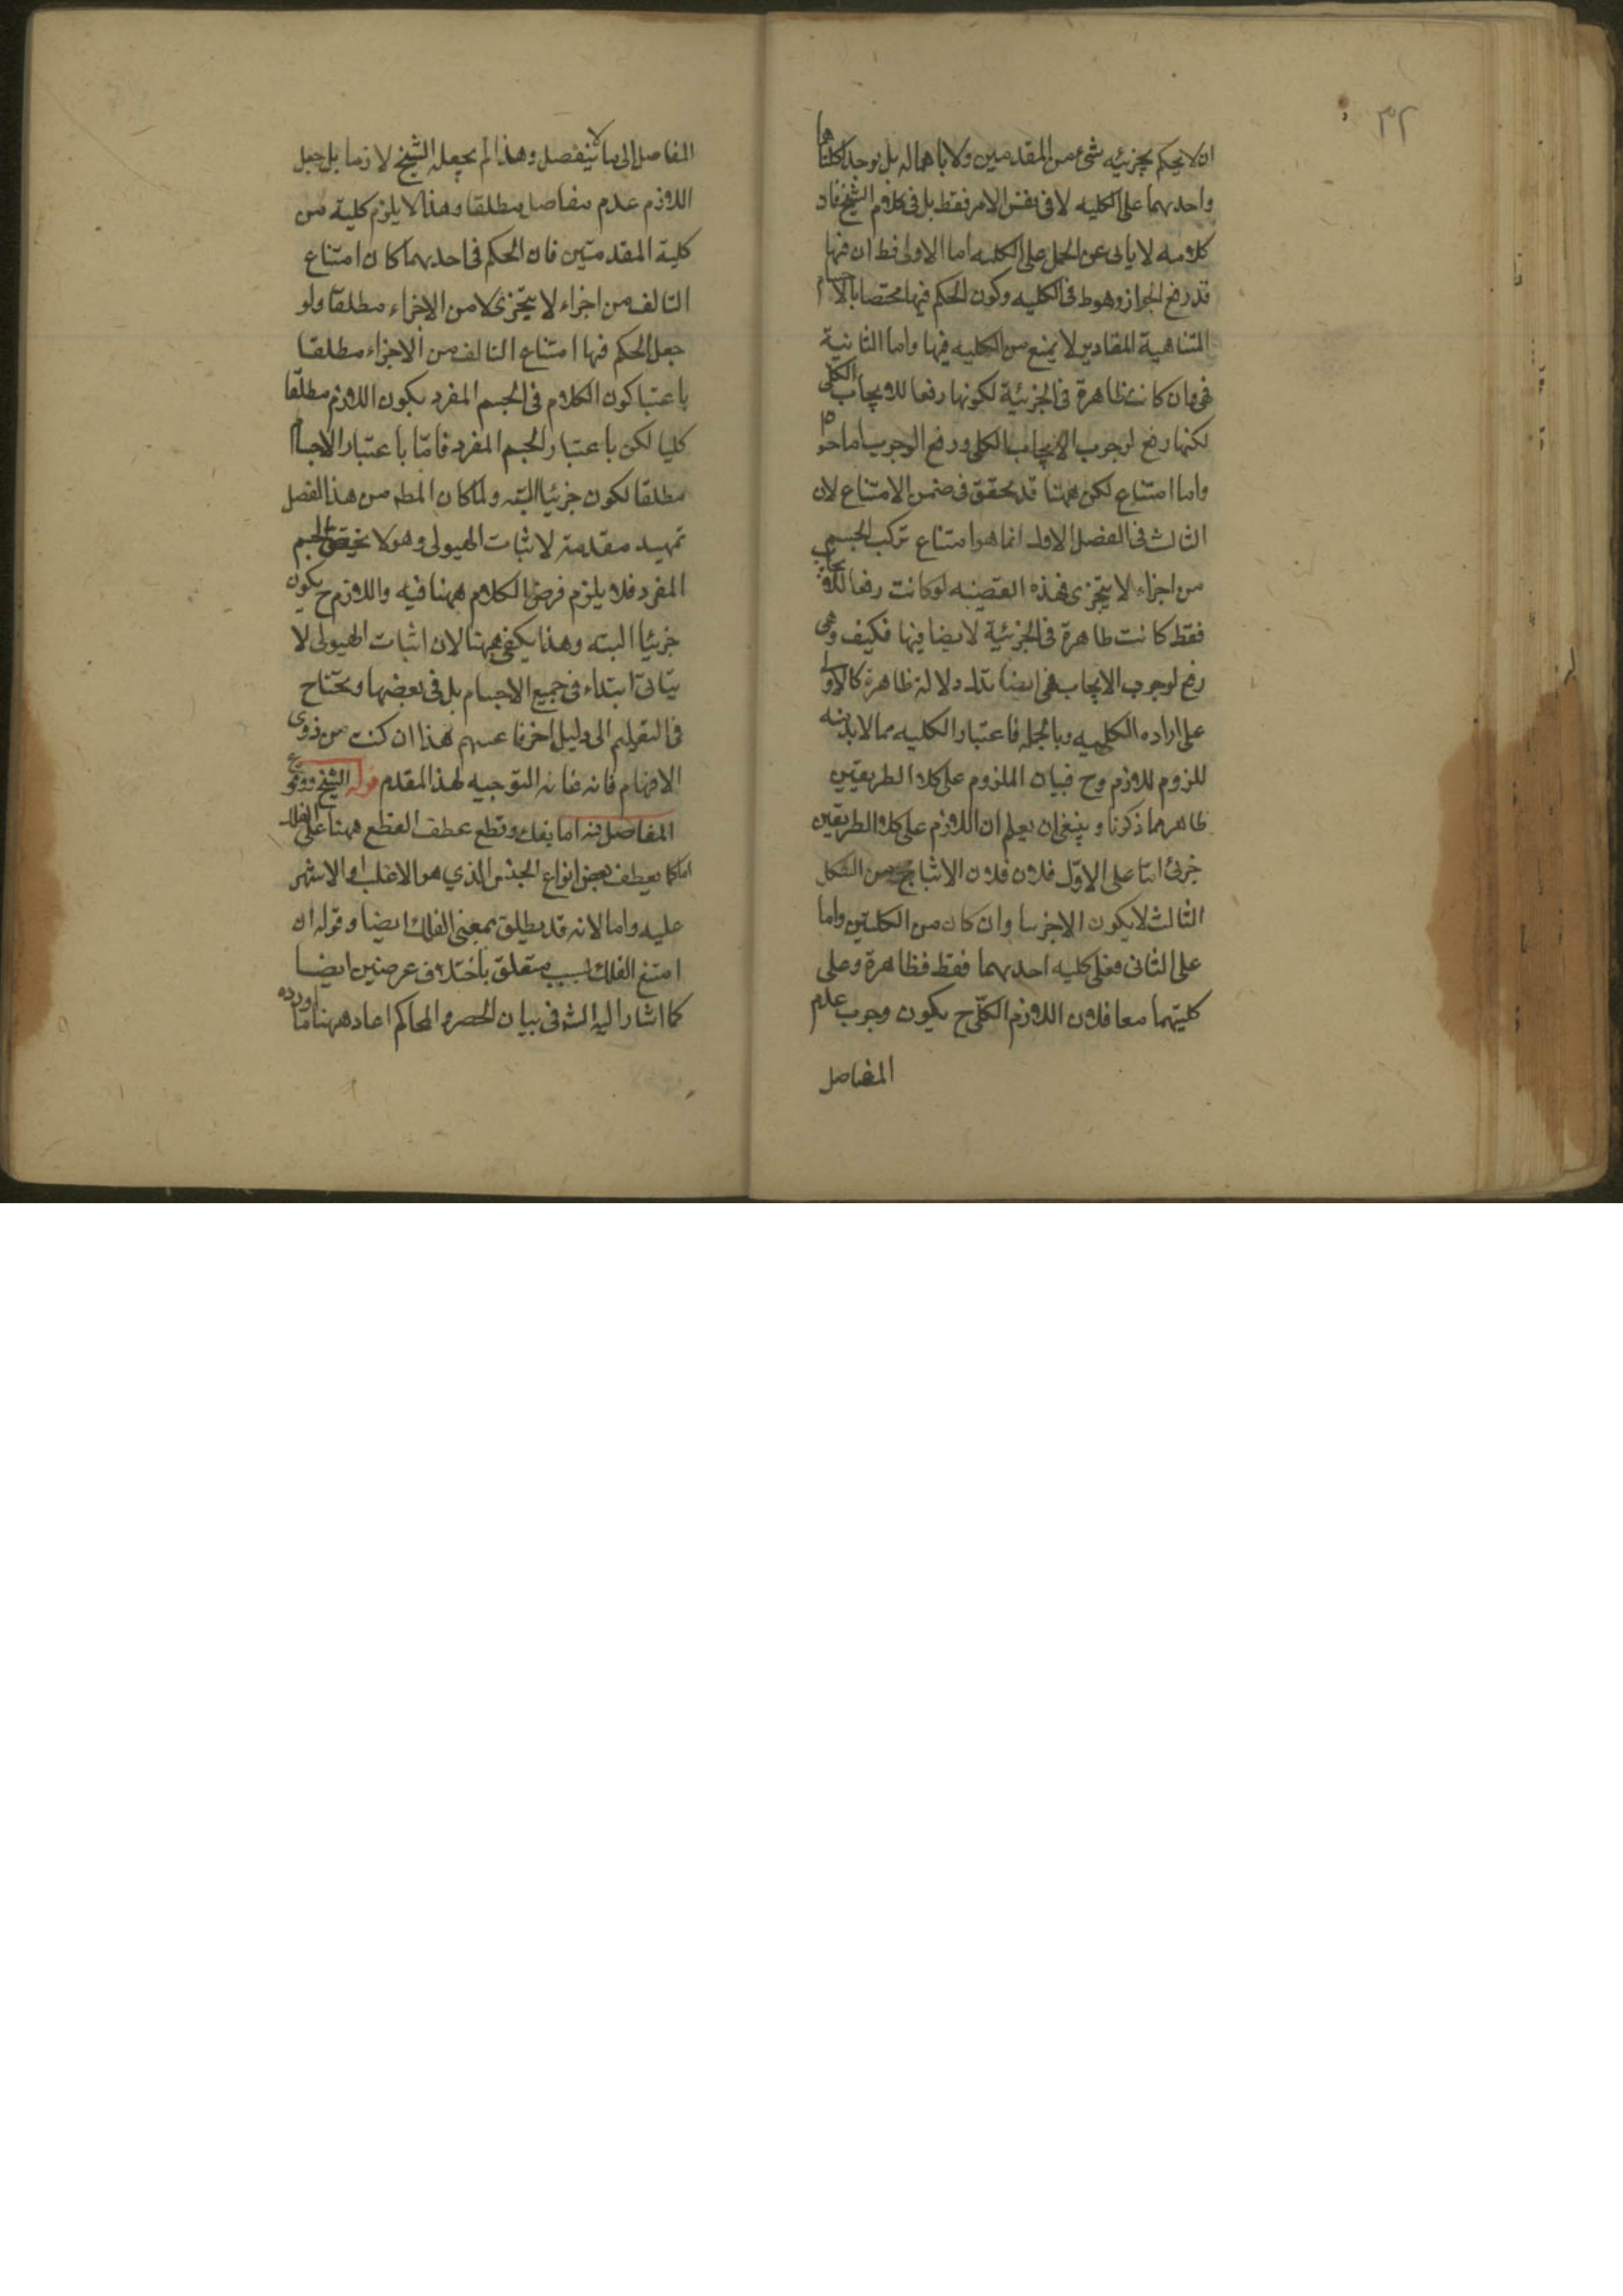 ٣٢
ان لا يحكم بجزئيه شئ من المقدمين ولا باهماله بل يوجد كلتاهما
واحديهما على الكليه لا فى نفس الامر فقط بل فى كلام الشيخ فان
كلامه لا يابى عن الحمل على الكليه اما الاولى فط ان فيها
قد رفع الجواز وهو ط فى الكليه وكون الحكم فيها مختصا بالاجسام
المتناهية المقادير لا يمنع من الكليه فيها واما الثانية
فهى وان كانت ظاهرة فى الجزئية لكونها رفعا للايجاب الكلى
لكنها رفع لوجوب الايجاب الكلى ورفع الوجوب اما جواز
واما امتناع لكن ههنا قد تحقق فى ضمن الامتناع لان
الثالث فى الفصل الاول انما هو امتناع تركب الجسم
من اجزاء لا يتجزى فهذه القضيه لو كانت رفعا للايجاب
فقط كانت ظاهرة فى الجزئية لا نصا فيها فكيف وهى
رفع لوجوب الايجاب فهى ايضا تدل دلالة ظاهرة كالاولى
على اراده الكليه وبالجمله فاعتبار الكليه مما لا بد منه
للزوم اللازم وح فبيان الملزوم على كلا الطريقين
ظاهر مما ذكرنا وينبغى ان يعلم ان اللازم على كلا الطريقين
جزئى اما على الاول فلان الانتاج من الشكل
الثالث لا يكون الا جزئيا وان كان من الكليتين واما
على الثانى فعلى كليه احديهما فقط فظاهرة وعلى
كليتهما معا فلان اللازم الكلى ح يكون وجوب عدم
المفاصل
المفاصل الى ما لا ينفصل وهذا لم يجعله الشيخ لازما بل جعل
اللازم عدم مفاصل مطلقا وهذا لا يلزم كلية من
كلية المقدمتين فان الحكم فى احديهما كان امتناع
التالف من اجزاء لا يتجزى لا من الاجزاء مطلقا ولو
جعل الحكم فيها امتناع التالف من الاجزاء مطلقا
باعتبا كون الكلام فى الجسم المفرد يكون اللازم مطلقا
كليا لكن باعتبار الجسم المفرد فاما باعتبار الاجسام
مطلقا لكون جزئيا البته ولما كان المط من هذا الفصل
تمهيد مقدمة لاثبات الهيولى وهو لا يختص بالجسم
المفرد فلا يلزم فرض الكلام ههنا فيه واللازم ح يكون
جزئيا البته وهذا يكفى ههنا لان اثبات الهيولى لا
يتاتى ابتداء فى جميع الاجسام بل فى بعضها ويحتاج
فى التعميم الى دليل اخر هذا ان كنت من ذوى
الافهام فانه غاية التوجيه لهذا المقدم قوله الشيخ ووقوع
المفاصل منه اما بفك وقطع عطف القطع ههنا على الفك
اما كما يعطف بعض انواع الجنس الذي هو الاغلب والاشهر
عليه واما لانه قد يطلق بمعنى الفك ايضا وقوله ان
امتنع الفك لسبب متعلق باختلاف عرضين ايضا
كما اشار اليه الش فى بيان الحصر والمحاكم اعاد ههنا ما اورده